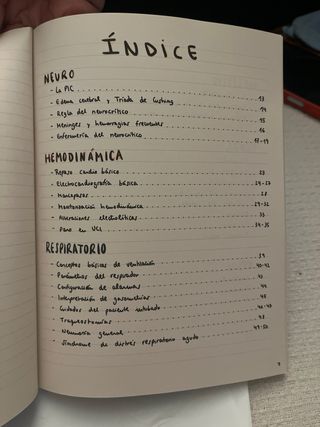 ÍNDICE
NEURO
- La PIC
- Edema cerebral y Triada de Cushing 13
- Regla del neurocrítico 14
- Meninges y hemorragias frecuentes 15
- Enfermería del neurocrítico 16
17-19
HEMODINÁMICA
- Repaso cardio básico 23
- Electrocardiografía básica 24-27
- Marcapasos 28
- Monitorización hemodinámica 29-32
- Alteraciones electrolíticas 33
- Paro en UCI 34-35
RESPIRATORIO
- Conceptos básicos de ventilación 39
- Parámetros del respirador 40-42
- Configuración de alarmas 43
- Interpretación de gasometrías 44
- Cuidados del paciente intubado 45
- Traqueostomías
- Neumonía general 48
- Síndrome de distrés respiratorio agudo 49-50